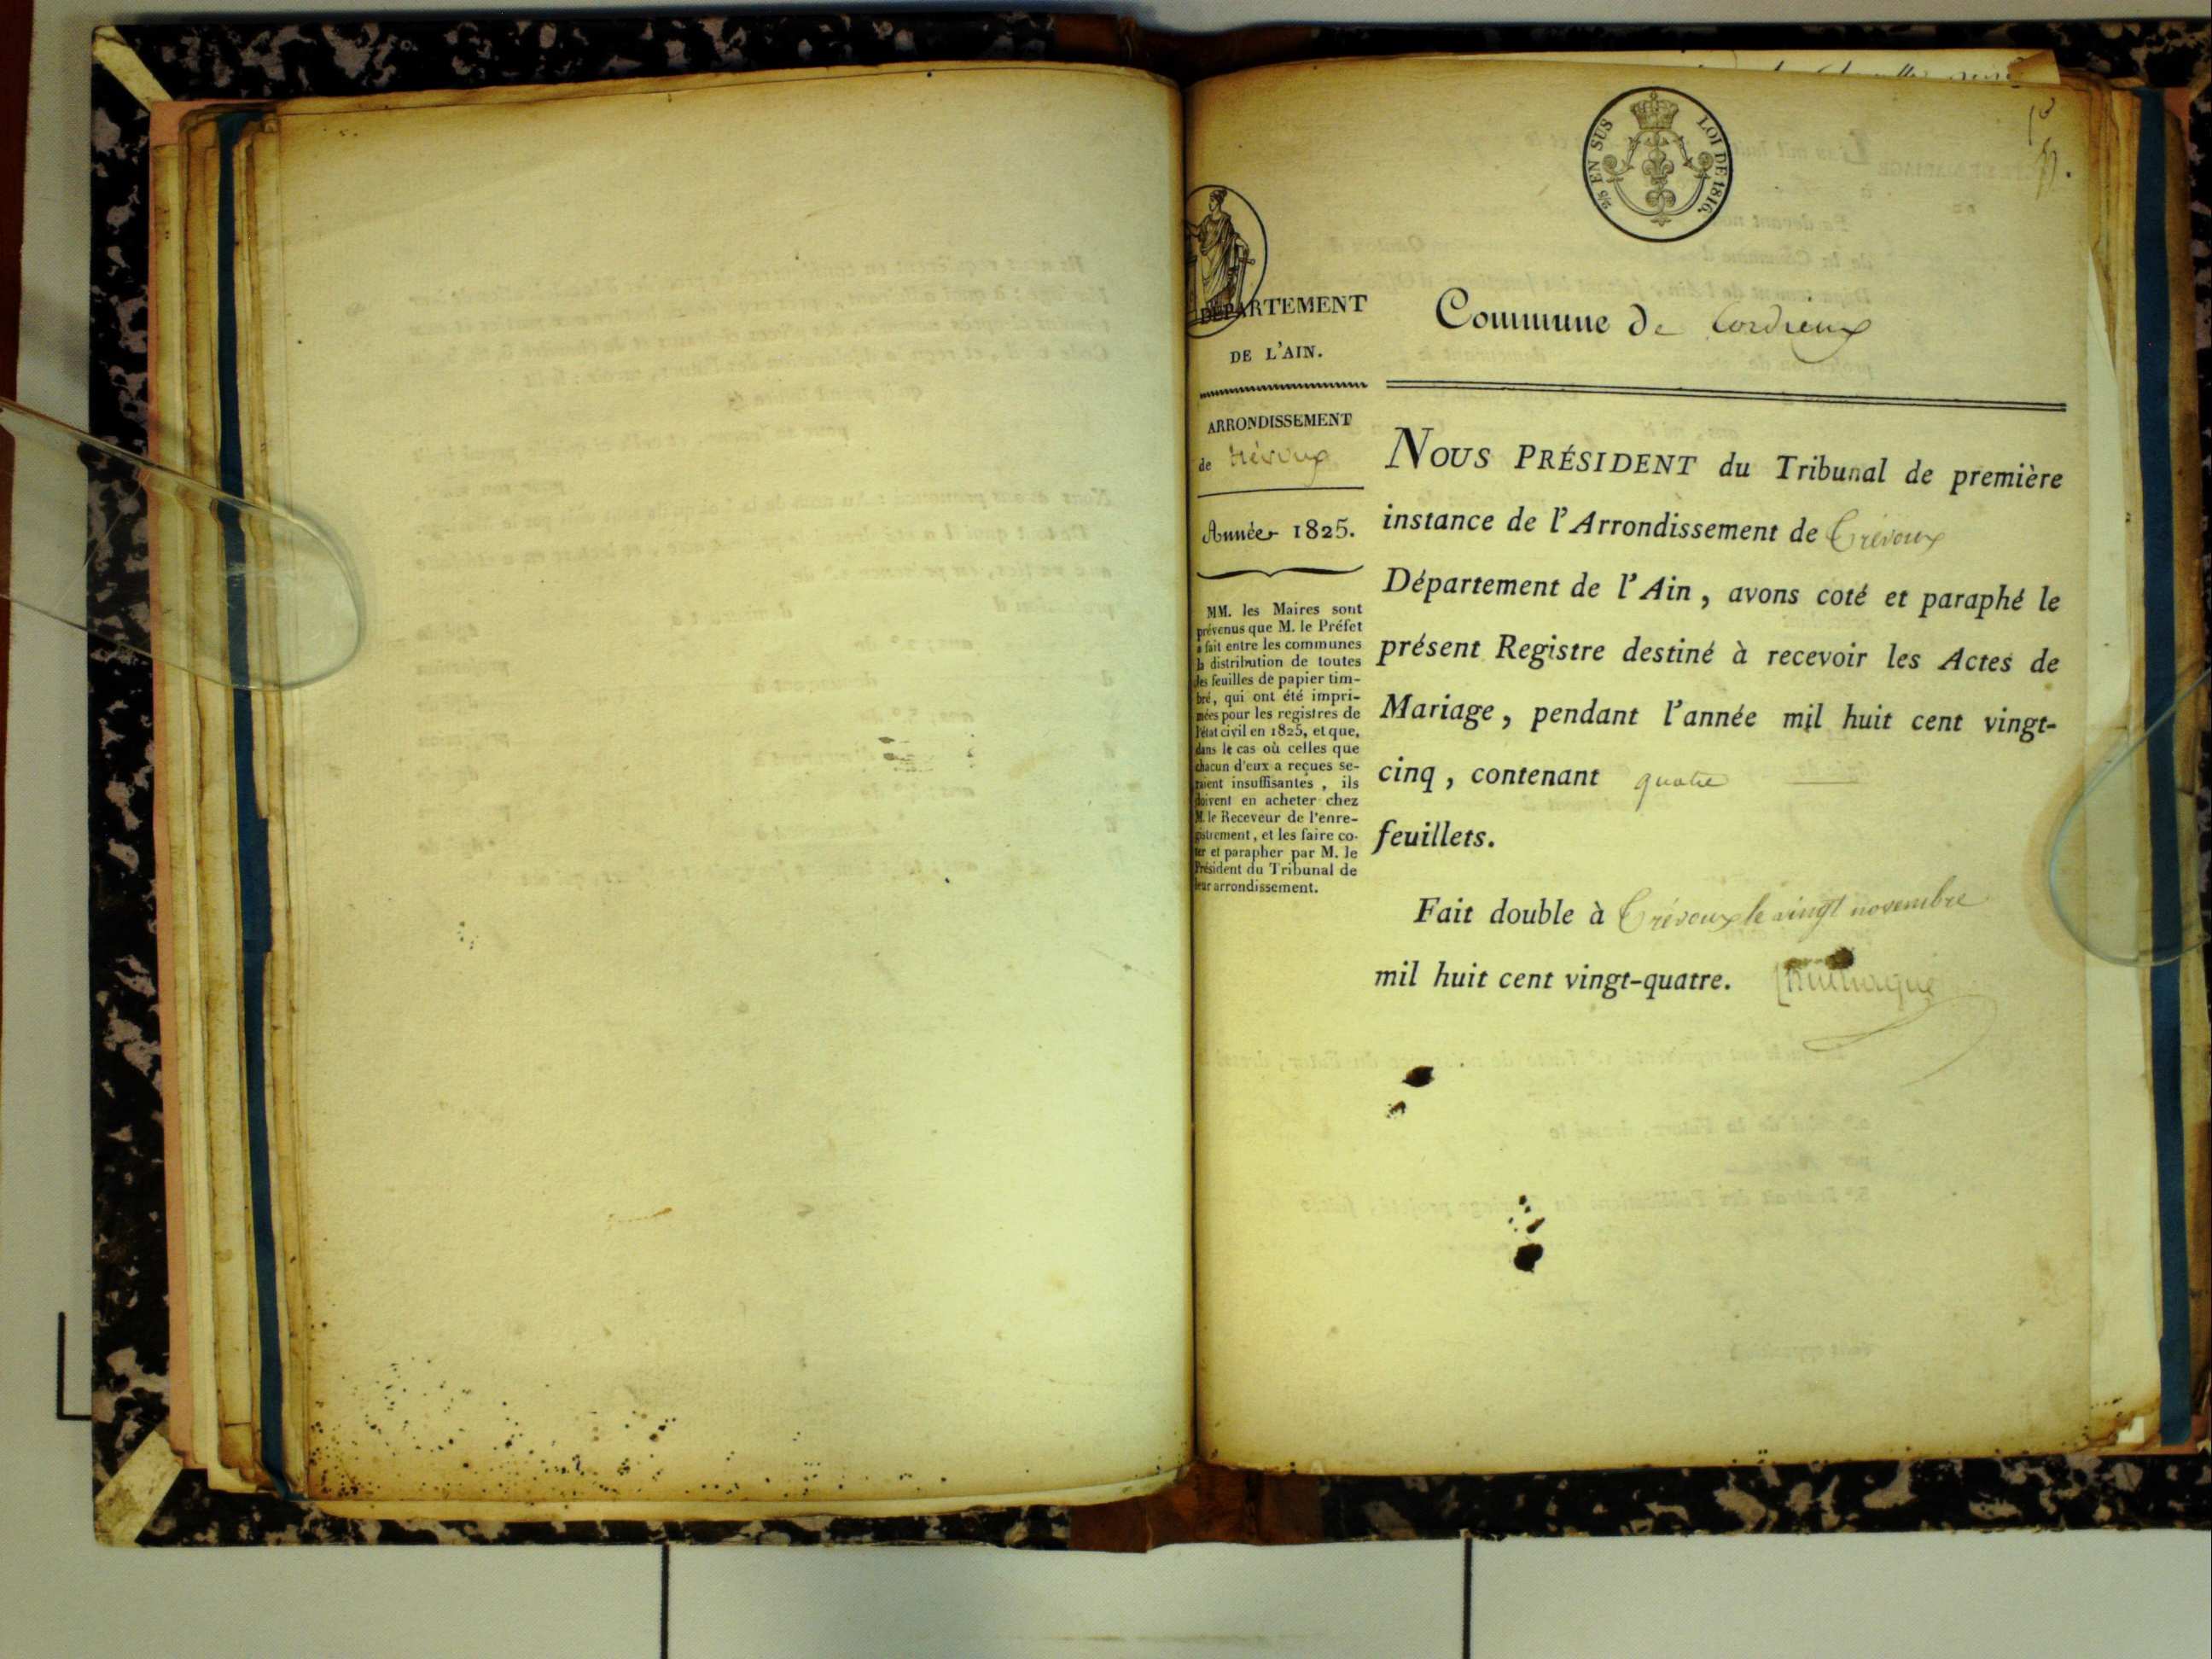 2/5 EN SUS LOI DE 1816.
DÉPARTEMENT
DE L'AIN.
ARRONDISSEMENT
de trévoux
Année 1825.
MM. les Maires sont
prévenus que M. le Préfet
a fait entre les communes
la distribution de toutes
les feuilles de papier tim-
bré, qui ont été impri-
mées pour les registres de
l'état civil en 1825, et que,
dans le cas où celles que
chacun d'eux a reçues se-
raient insuffisantes, ils
doivent en acheter chez
M. le Receveur de l'enre-
gistrement, et les faire co-
ter et parapher par M. le
Président du Tribunal de
leur arrondissement.
Commune de Cordieux
NOUS PRÉSIDENT du Tribunal de première
instance de l'Arrondissement de Trévoux
Département de l'Ain, avons coté et paraphé le
présent Registre destiné à recevoir les Actes de
Mariage, pendant l'année mil huit cent vingt-
cinq, contenant quatre
feuillets.
Fait double à Trévoux le vingt novembre
mil huit cent vingt-quatre.